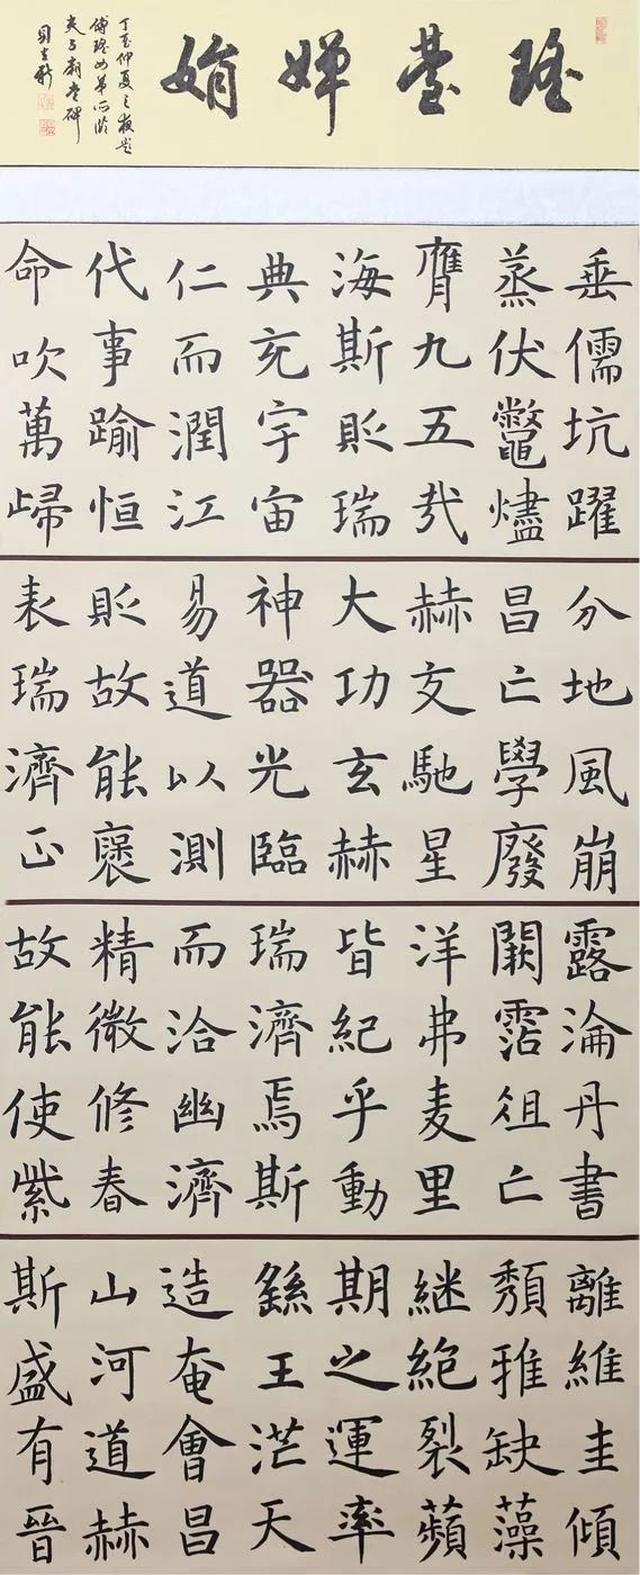 瑤臺嬋娟
丁酉仲夏之夜題
傅瑤女弟所臨
夫子廟堂碑
垂儒坑躍
蒸伏鼈燼
膺九五哉
海斯貶瑞
典充宇宙
仁而潤江
代事踰恒
命吹萬歸
分地風崩
昌亡學廢
赫文馳星
大功玄赫
神器光臨
易道以測
貶故能褒
表瑞濟正
露淪丹書
闕霑徂亡
洋弗麦里
皆紀乎動
瑞濟焉斯
而洽幽濟
精微修春
故能使紫
離維圭傾
頹雅缺藻
継絶裂蘋
期之運率
繇王茫天
造奄會昌
山河道赫
斯盛有晉